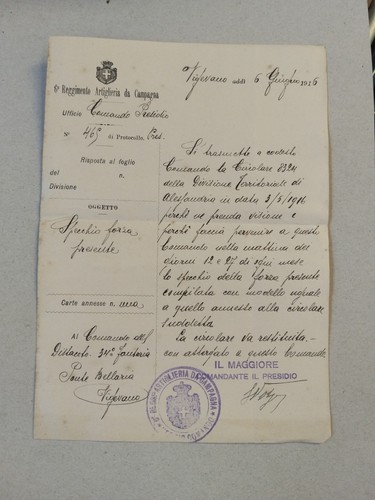 6° Reggimento Artiglieria da Campagna
Vigevano addì 6 Giugno 1916
Ufficio Comando Presidio
N° 469 di Protocollo Pres.
Risposta al foglio
del n.
Divisione
OGGETTO
Specchio forza
presente
Carte annesse n. una
Al Comando del
Distacto. 34° fanteria
Ponte Bellaria
Vigevano
Si trasmette a codesto
Comando la Circolare 8324
della Divisione Territoriale di
Alessandria in data 3/5/1916
perchè ne prenda visione e
perchè faccia pervenire a questo
Comando nella mattina dei
giorni 12 e 27 di ogni mese
lo specchio della forza presente
compilata con modello uguale
a quello annesso alla circolare
suddetta.
La circolare va restituita
con a questo Comando
IL MAGGIORE
COMANDANTE IL PRESIDIO
6° REGG. ARTIGLIERIA DA CAMPAGNA